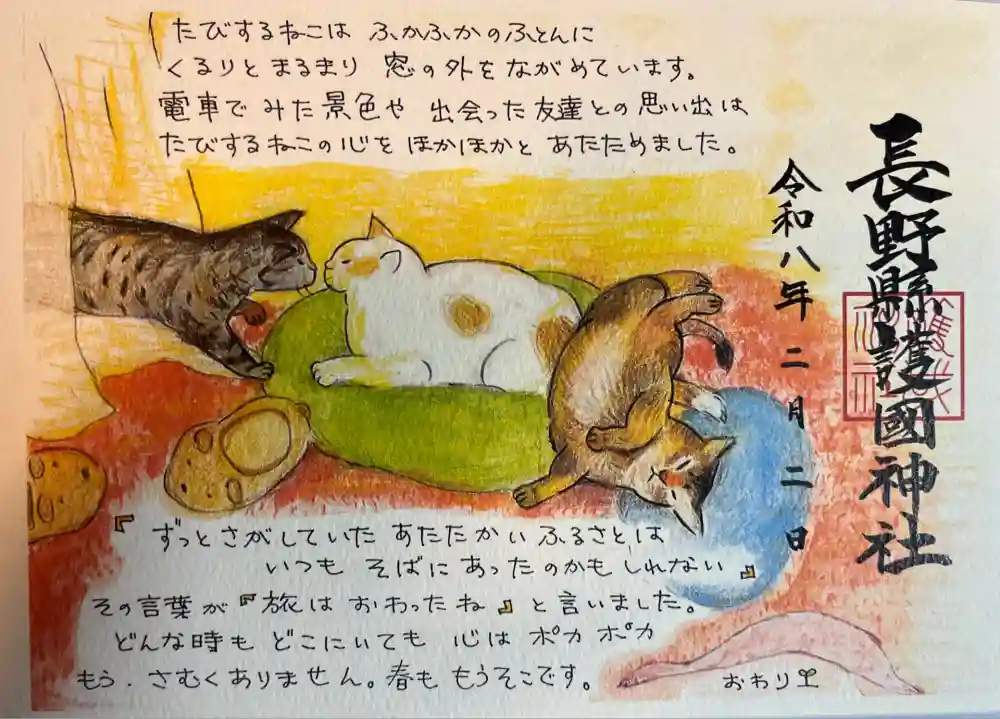 たびするねこは ふかふかのふとんに
くるりとまるまり 窓の外をながめています。
電車で みた景色や 出会った友達との思い出は
たびするねこの心を ほかほかと あたためました。
長野縣護國神社
令和八年 二月 二日
『ずっとさがしていた あたたかい ふるさとは
いつも そばに あったのかもしれない』
その言葉が『旅は おわったね』と言いました。
どんな時も どこにいても 心は ポカポカ
もう、さむくありません。春も もうそこです。
おわり